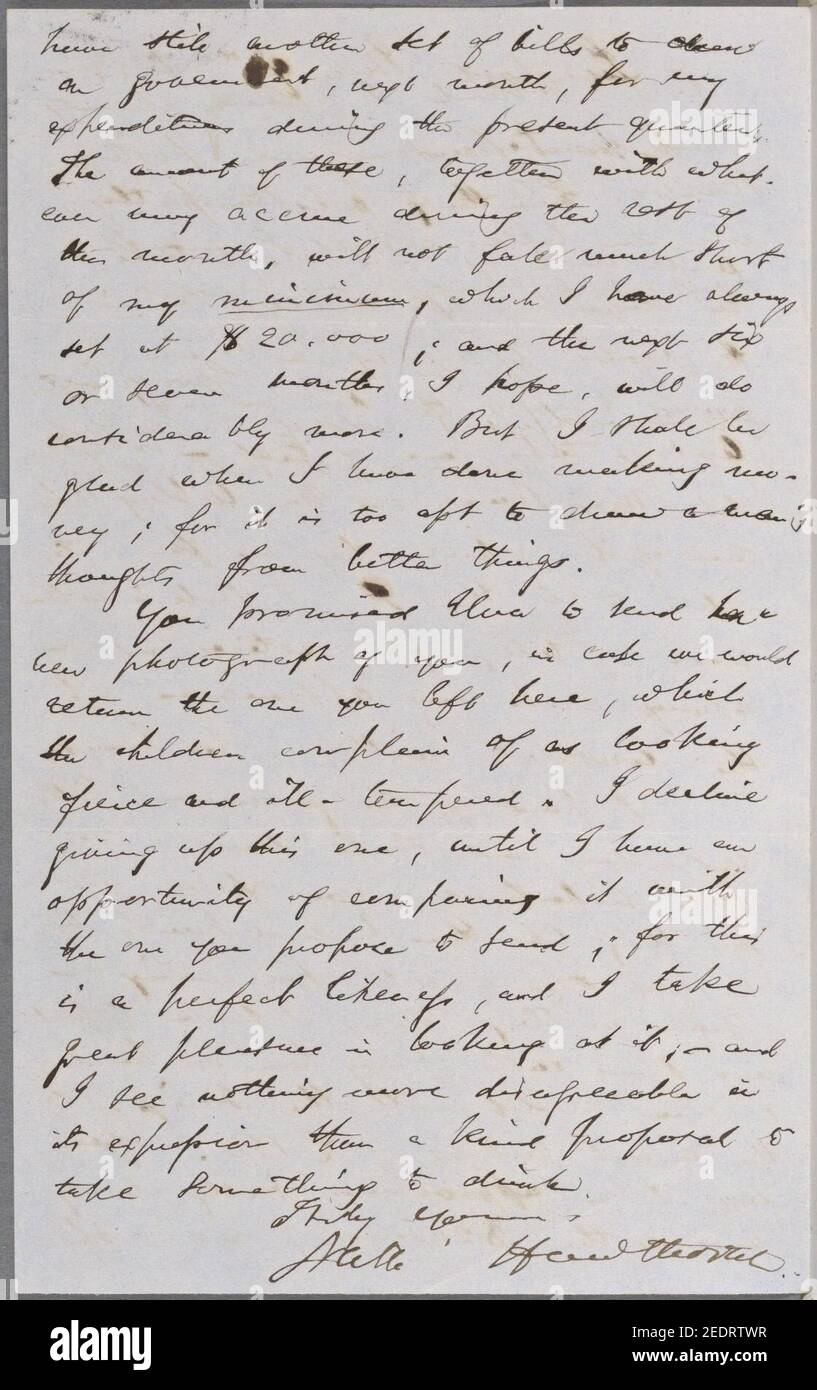 have still another set of bills to draw
on government, next month, for my
expenditures during the present quarter.
The amount of these, together with what-
ever may accrue during the rest of
this month, will not fall much short
of my minimum, which I have always
set at $20.000; and the next six
or seven months, I hope, will do
considerably more. But I shall be
glad when I have done making mo-
ney; for it is too apt to draw a man's
thoughts from better things.
You promised Una to send her a
new photograph of you, in case we would
return the one you left here, which
the children complain of as looking
fierce and ill-tempered. I decline
giving up this one, until I have an
opportunity of comparing it with
the one you propose to send; for this
is a perfect likeness, and I take
great pleasure in looking at it;— and
I see nothing more disagreeable in
its expression than a kind proposal to
take something to drink.
Truly Yours,
Nath' Hawthorne.
alamy
alamy
alamy
alamy
alamy
Image ID: 2EDRTWR
www.alamy.com